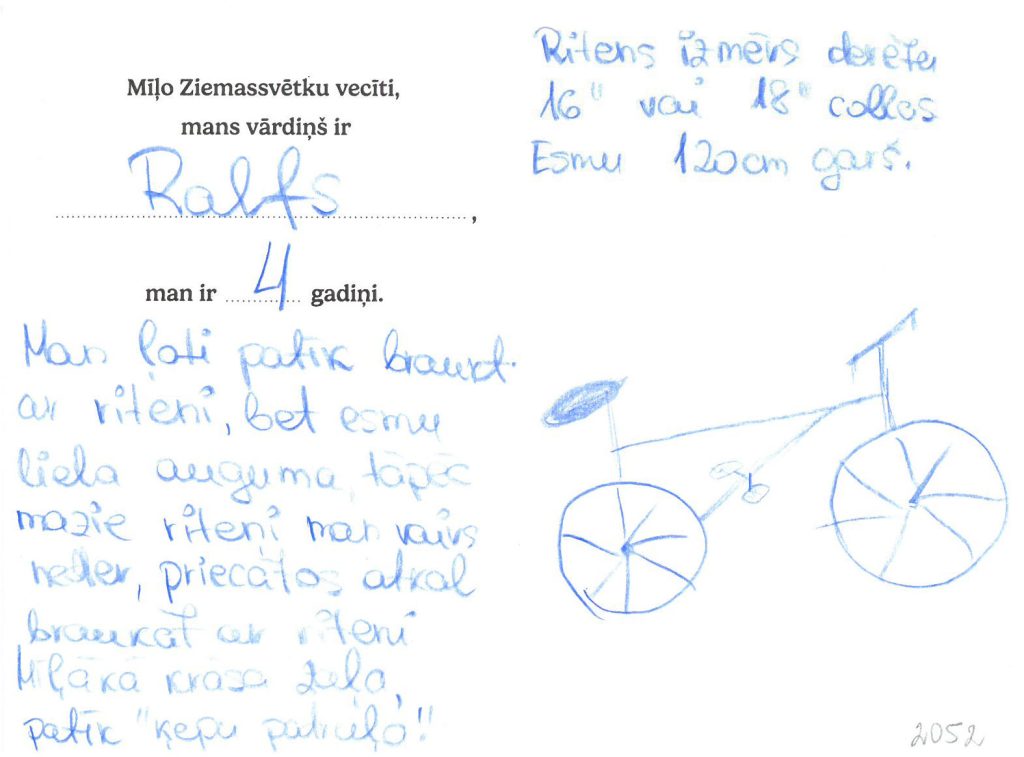 Mīļo Ziemassvētku vecīti,
mans vārdiņš ir
Ralfs,
man ir 4 gadiņi.
Man ļoti patīk braukt
ar riteni, bet esmu
liela auguma, tāpēc
mazie riteņi man vairs
neder, priecātos atkal
braukāt ar riteni
Mīļākā krāsa zaļa,
patīk "ķepu patruļa"!
Ritens izmērs derētu
16" vai 18" collas
Esmu 120cm garš.
2052